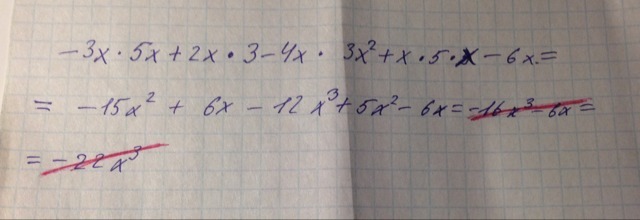 -3x · 5x + 2x · 3 - 4x · 3x² + x · 5 · x - 6x =
= -15x² + 6x - 12x³ + 5x² - 6x = -16x³ - 6x =
= -22x³